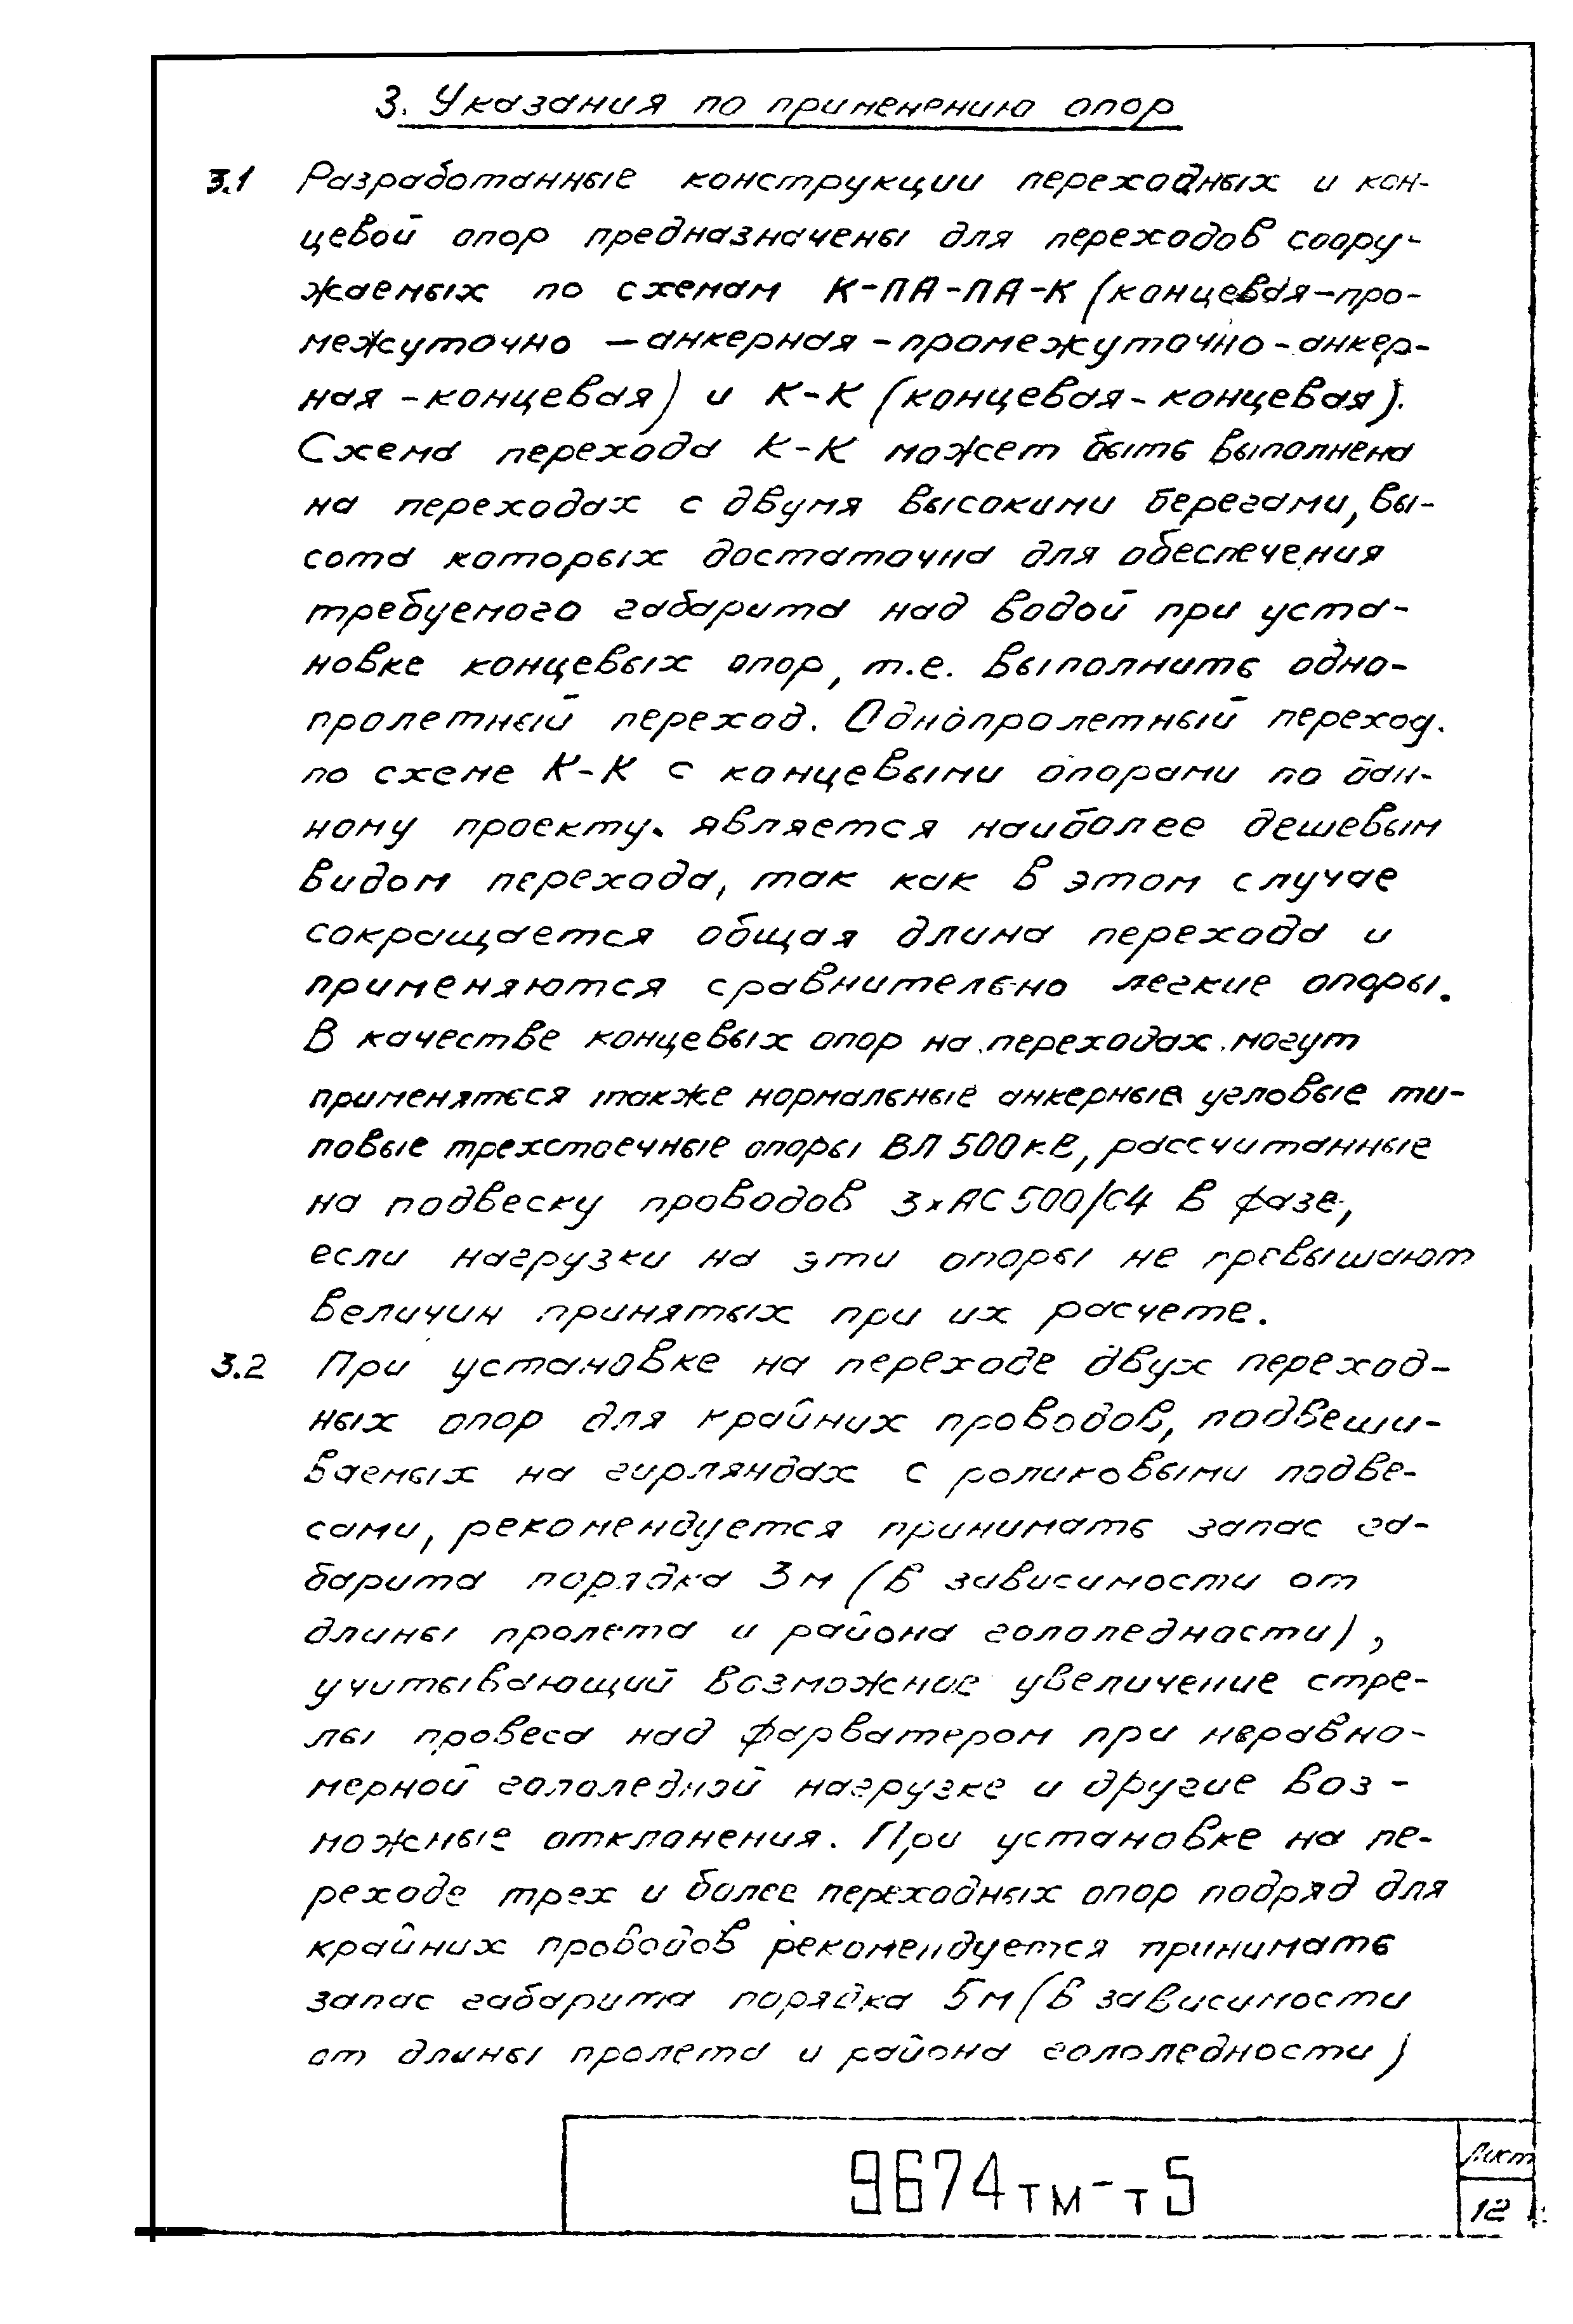 3. Указания по применению опор
3.1 Разработанные конструкции переходных и кон-
цевой опор предназначены для переходов соору-
жаемых по схемам К-ПА-ПА-К (концевая-про-
межуточно - анкерная - промежуточно - анкер-
ная - концевая) и К-К (концевая - концевая).
Схема перехода К-К может быть выполнена
на переходах с двумя высокими берегами, вы-
сота которых достаточна для обеспечения
требуемого габарита над водой при уста-
новке концевых опор, т.е. выполнить одно-
пролетный переход. Однопролетный переход.
по схеме К-К с концевыми опорами по дан-
ному проекту. является наиболее дешевым
видом перехода, так как в этом случае
сокращается общая длина перехода и
применяются сравнительно легкие опоры.
В качестве концевых опор на переходах могут
применяться также нормальные анкерные угловые ти-
повые трехстоечные опоры ВЛ 500 кВ, рассчитанные
на подвеску проводов 3×АС 500/64 в фазе,
если нагрузки на эти опоры не превышают
величин принятых при их расчете.
3.2 При установке на переходе двух переход-
ных опор для крайних проводов, подвеши-
ваемых на гирляндах с роликовыми подве-
сами, рекомендуется принимать запас га-
барита порядка 3 м (в зависимости от
длины пролета и района гололедности),
учитывающий возможное увеличение стре-
лы провеса над фарватером при неравно-
мерной гололедной нагрузке и другие воз-
можные отклонения. При установке на пе-
реходе трех и более переходных опор подряд для
крайних проводов рекомендуется принимать
запас габарита порядка 5 м (в зависимости
от длины пролета и района гололедности)
9674тм-т5
Лист
12